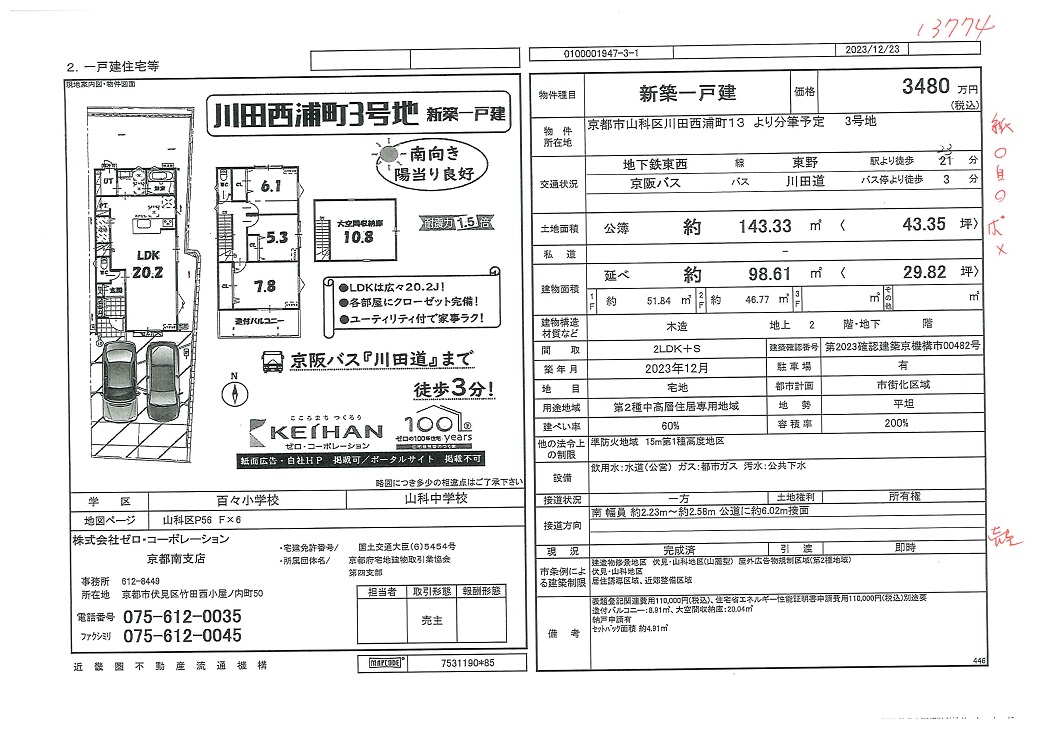 13774
0100001947-3-1
2023/12/23
2. 一戸建住宅等
現地案内図・物件図面
川田西浦町3号地 新築一戸建
南向き
陽当り良好
UT
浴室
PT
LDK
20.2
WC
玄関
WC
CL
6.1
CL
5.3
7.8
造付バルコニー
大空間収納庫
10.8
耐震力1.5倍
●LDKは広々20.2J!
●各部屋にクローゼット完備!
●ユーティリティ付で家事ラク!
京阪バス『川田道』まで
徒歩3分!
N
こころまち つくろう
KEIHAN
ゼロ・コーポレーション
100年
ゼロの100年住宅 years
紙面広告・自社HP 掲載可/ポータルサイト 掲載不可
略図につき多少の相違点はご了承下さい
学 区 百々小学校 山科中学校
地図ページ 山科区P56 F×6
株式会社ゼロ・コーポレーション
京都南支店
・宅建免許番号/ 国土交通大臣(6)5454号
・所属団体名/ 京都府宅地建物取引業協会
第四支部
事務所 612-8449
所在地 京都市伏見区竹田西小屋ノ内町50
電話番号 075-612-0035
ファクシミリ 075-612-0045
担当者 取引形態 報酬形態
売主
近畿圏不動産流通機構
MAPCODE 7531190*85
物件種目 新築一戸建 価格 3480 万円
(税込)
物件所在地 京都市山科区川田西浦町13 より分筆予定 3号地
交通状況 地下鉄東西 線 東野 駅より徒歩 21 分
23
京阪バス バス 川田道 バス停より徒歩 3 分
土地面積 公簿 約 143.33 ㎡ 〈 43.35 坪〉
私 道 -
建物面積 延べ 約 98.61 ㎡ 〈 29.82 坪〉
1F 約 51.84 ㎡ 2F 約 46.77 ㎡ 3F ㎡ その他 ㎡
建物構造材質など 木造 地上 2 階・地下 階
間 取 2LDK+S 建築確認番号 第2023確認建築京機構市00482号
築年月 2023年12月 駐車場 有
地 目 宅地 都市計画 市街化区域
用途地域 第2種中高層住居専用地域 地 勢 平坦
建ぺい率 60% 容積率 200%
他の法令上の制限 準防火地域 15m第1種高度地区
設備 飲用水:水道(公営) ガス:都市ガス 汚水:公共下水
接道状況 一方 土地権利 所有権
接道方向 南 幅員 約2.23m~約2.58m 公道に約6.02m接面
現 況 完成済 引 渡 即時
市条例による建築制限 建造物修景地区 伏見・山科地区(山麓型) 屋外広告物規制区域(第2種地域)
伏見・山科地区
居住誘導区域、近郊整備区域
備 考 表題登記関連費用110,000円(税込)、住宅省エネルギー性能証明書申請費用110,000円(税込)別途要
造付バルコニー:8.91㎡、大空間収納庫:20.04㎡
納戸申請有
セットバック面積 約4.91㎡
446
紙
○
自
○
ポ
×